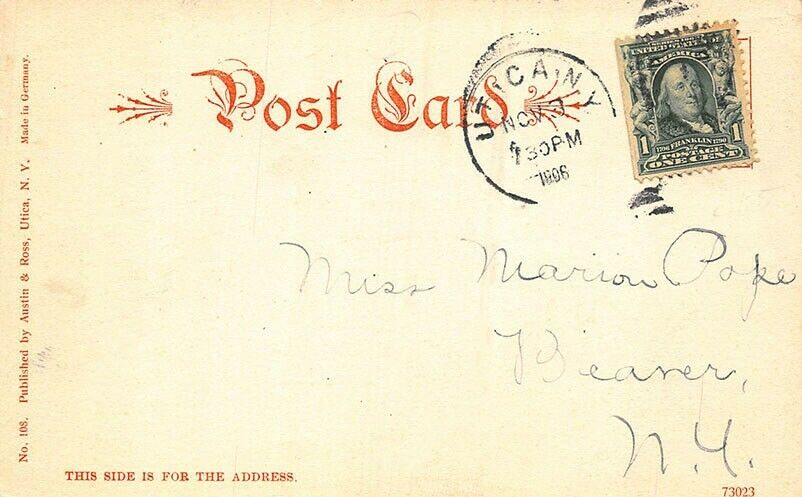 Post Card
UTICA, N.Y.
NOV 7
730PM
1906
UNITED STATES OF
AMERICA
1706 FRANKLIN 1790
1 POSTAGE 1
ONE CENT
Miss Marion Pope
Beaver,
N.Y.
THIS SIDE IS FOR THE ADDRESS.
73023
No. 108. Published by Austin & Ross, Utica, N. Y. Made in Germany.